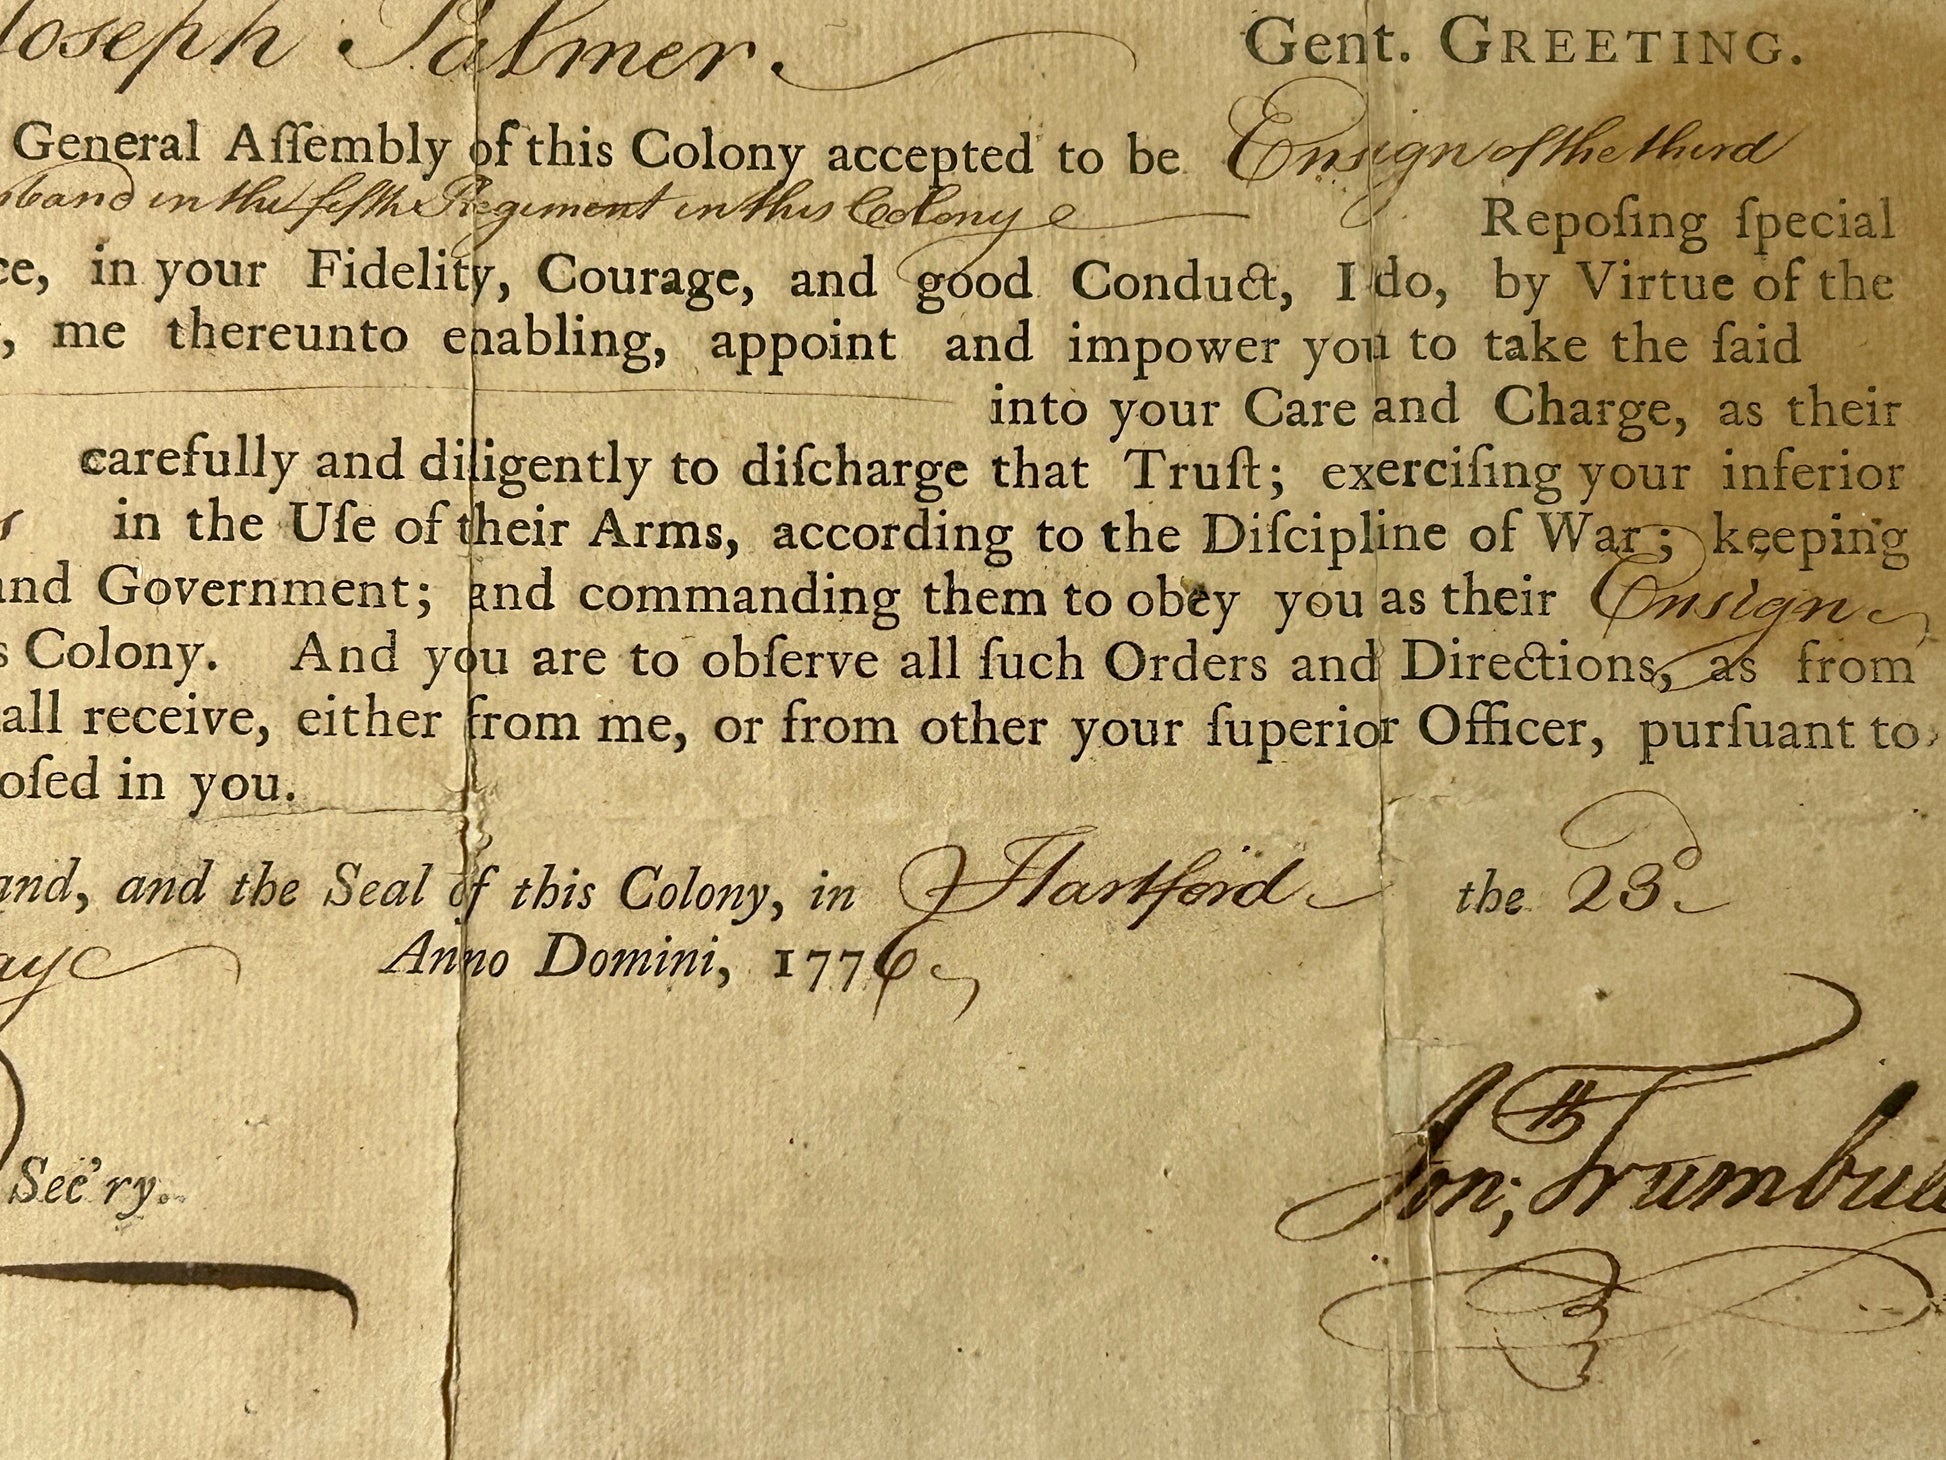 Joseph Palmer. Gent. GREETING.
General Aſſembly of this Colony accepted to be Ensign of the third
band in the fifth Regiment in this Colony
ce, in your Fidelity, Courage, and good Conduct, I do, by Virtue of the
Repoſing ſpecial
, me thereunto enabling, appoint and impower you to take the ſaid
into your Care and Charge, as their
carefully and diligently to diſcharge that Truſt; exerciſing your inferior
in the Uſe of their Arms, according to the Diſcipline of War; keeping
and Government; and commanding them to obey you as their Ensign
s Colony. And you are to obſerve all ſuch Orders and Directions, as from
all receive, either from me, or from other your ſuperior Officer, purſuant to
oſed in you.
and, and the Seal of this Colony, in Hartford the 23d
ay Anno Domini, 1776
Jonth; Trumbull
Sec'ry.